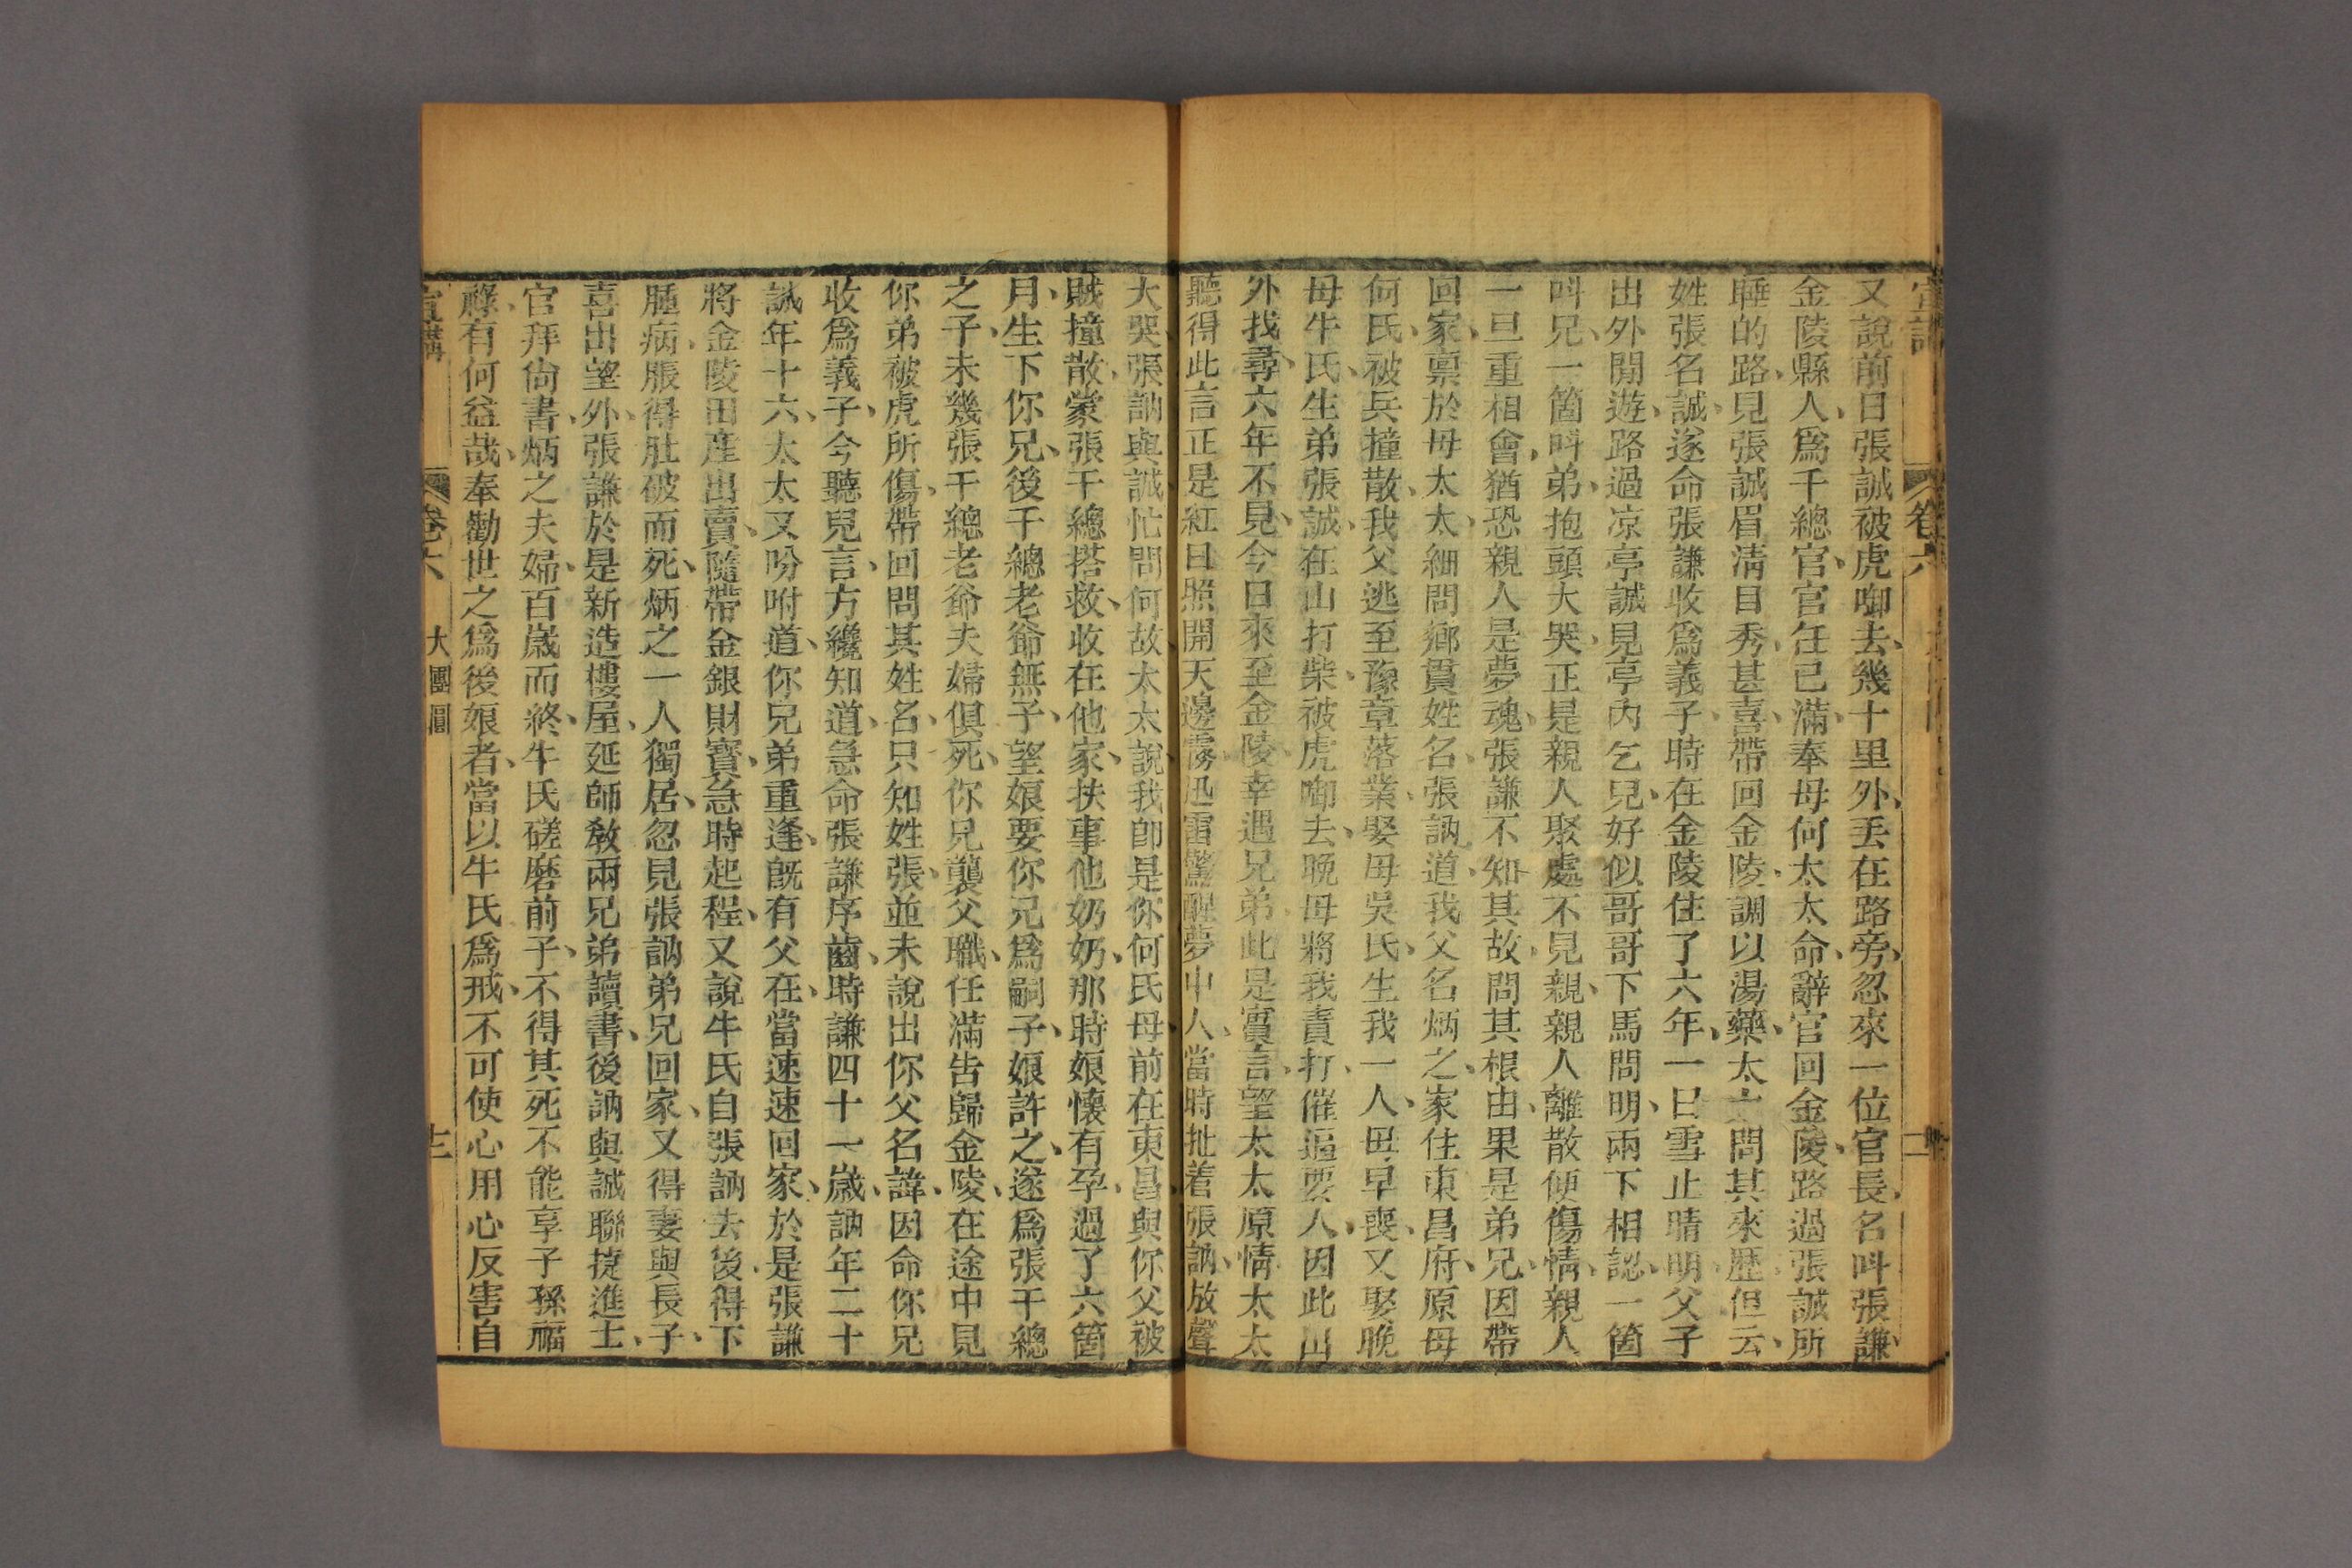 又說前日張誠被虎啣去、幾十里外、丟在路旁、忽來一位官長、名呌張謙、
金陵縣人、爲千總官、官任已滿、奉母何太太命、辭官回金陵、路過張誠所
睡的路、見張誠眉清目秀、甚喜、帶回金陵、調以湯藥、太太問其來歷、但云、
姓張名誠、遂命張謙收爲義子、時在金陵住了六年、一日雪止晴明、父子
出外閒遊、路過凉亭、誠見亭內乞兒、好似哥哥、下馬問明、兩下相認、一箇
呌兄、一箇呌弟、抱頭大哭、正是親人聚處不見親、親人離散便傷情、親人
一旦重相會、猶恐親人是夢魂、張謙不知其故、問其根由、果是弟兄、因帶
回家、禀於母太太、太太細問鄉貫姓名、張訥道、我父名炳之、家住東昌府、原母
何氏、被兵撞散、我父逃至豫章落業、娶母吳氏、生我一人、母早喪、又娶晚
母牛氏、生弟張誠、在山打柴、被虎啣去、晚母將我責打、催逼要人、因此出
外找尋、六年不見、今日來至金陵、幸遇兄弟、此是實言、望太太原情、太太
聽得此言、正是紅日照開天邊霧、迅雷驚醒夢中人、當時扯着張訥、放聲
大哭、張訥與誠忙問何故、太太說我卽是你何氏母、前在東昌與你父被
賊撞散、蒙張千總搭救、收在他家、扶事他奶奶、那時娘懷有孕、過了六箇
月、生下你兄、後千總老爺無子、望娘要你兄爲嗣子、娘許之、遂爲張千總
之子、未幾張千總老爺夫婦俱死、你兄襲父職、任滿告歸金陵、在途中見
你弟被虎所傷、帶回問其姓名、只知姓張、並未說出你父名諱、因命你兄
收爲義子、今聽兒言、方纔知道、急命張謙序齒、時謙四十一歲、訥年二十
誠年十六、太太又吩咐道、你兄弟重逢、旣有父在、當速速回家、於是張謙
將金陵田產出賣、隨帶金銀財寶、急時起程、又說牛氏自張訥去後、得下
腫病、脹得肚破而死、炳之一人獨居、忽見張訥弟兄回家、又得妻與長子、
喜出望外、張謙於是新造樓屋、延師教兩兄弟讀書、後訥與誠聯捷進士、
官拜尙書、炳之夫婦、百歲而終、牛氏磋磨前子、不得其死、不能享子孫福
祿、有何益哉、奉勸世之爲後娘者、當以牛氏爲戒、不可使心用心反害自
宣講 卷六 大團圓 十二